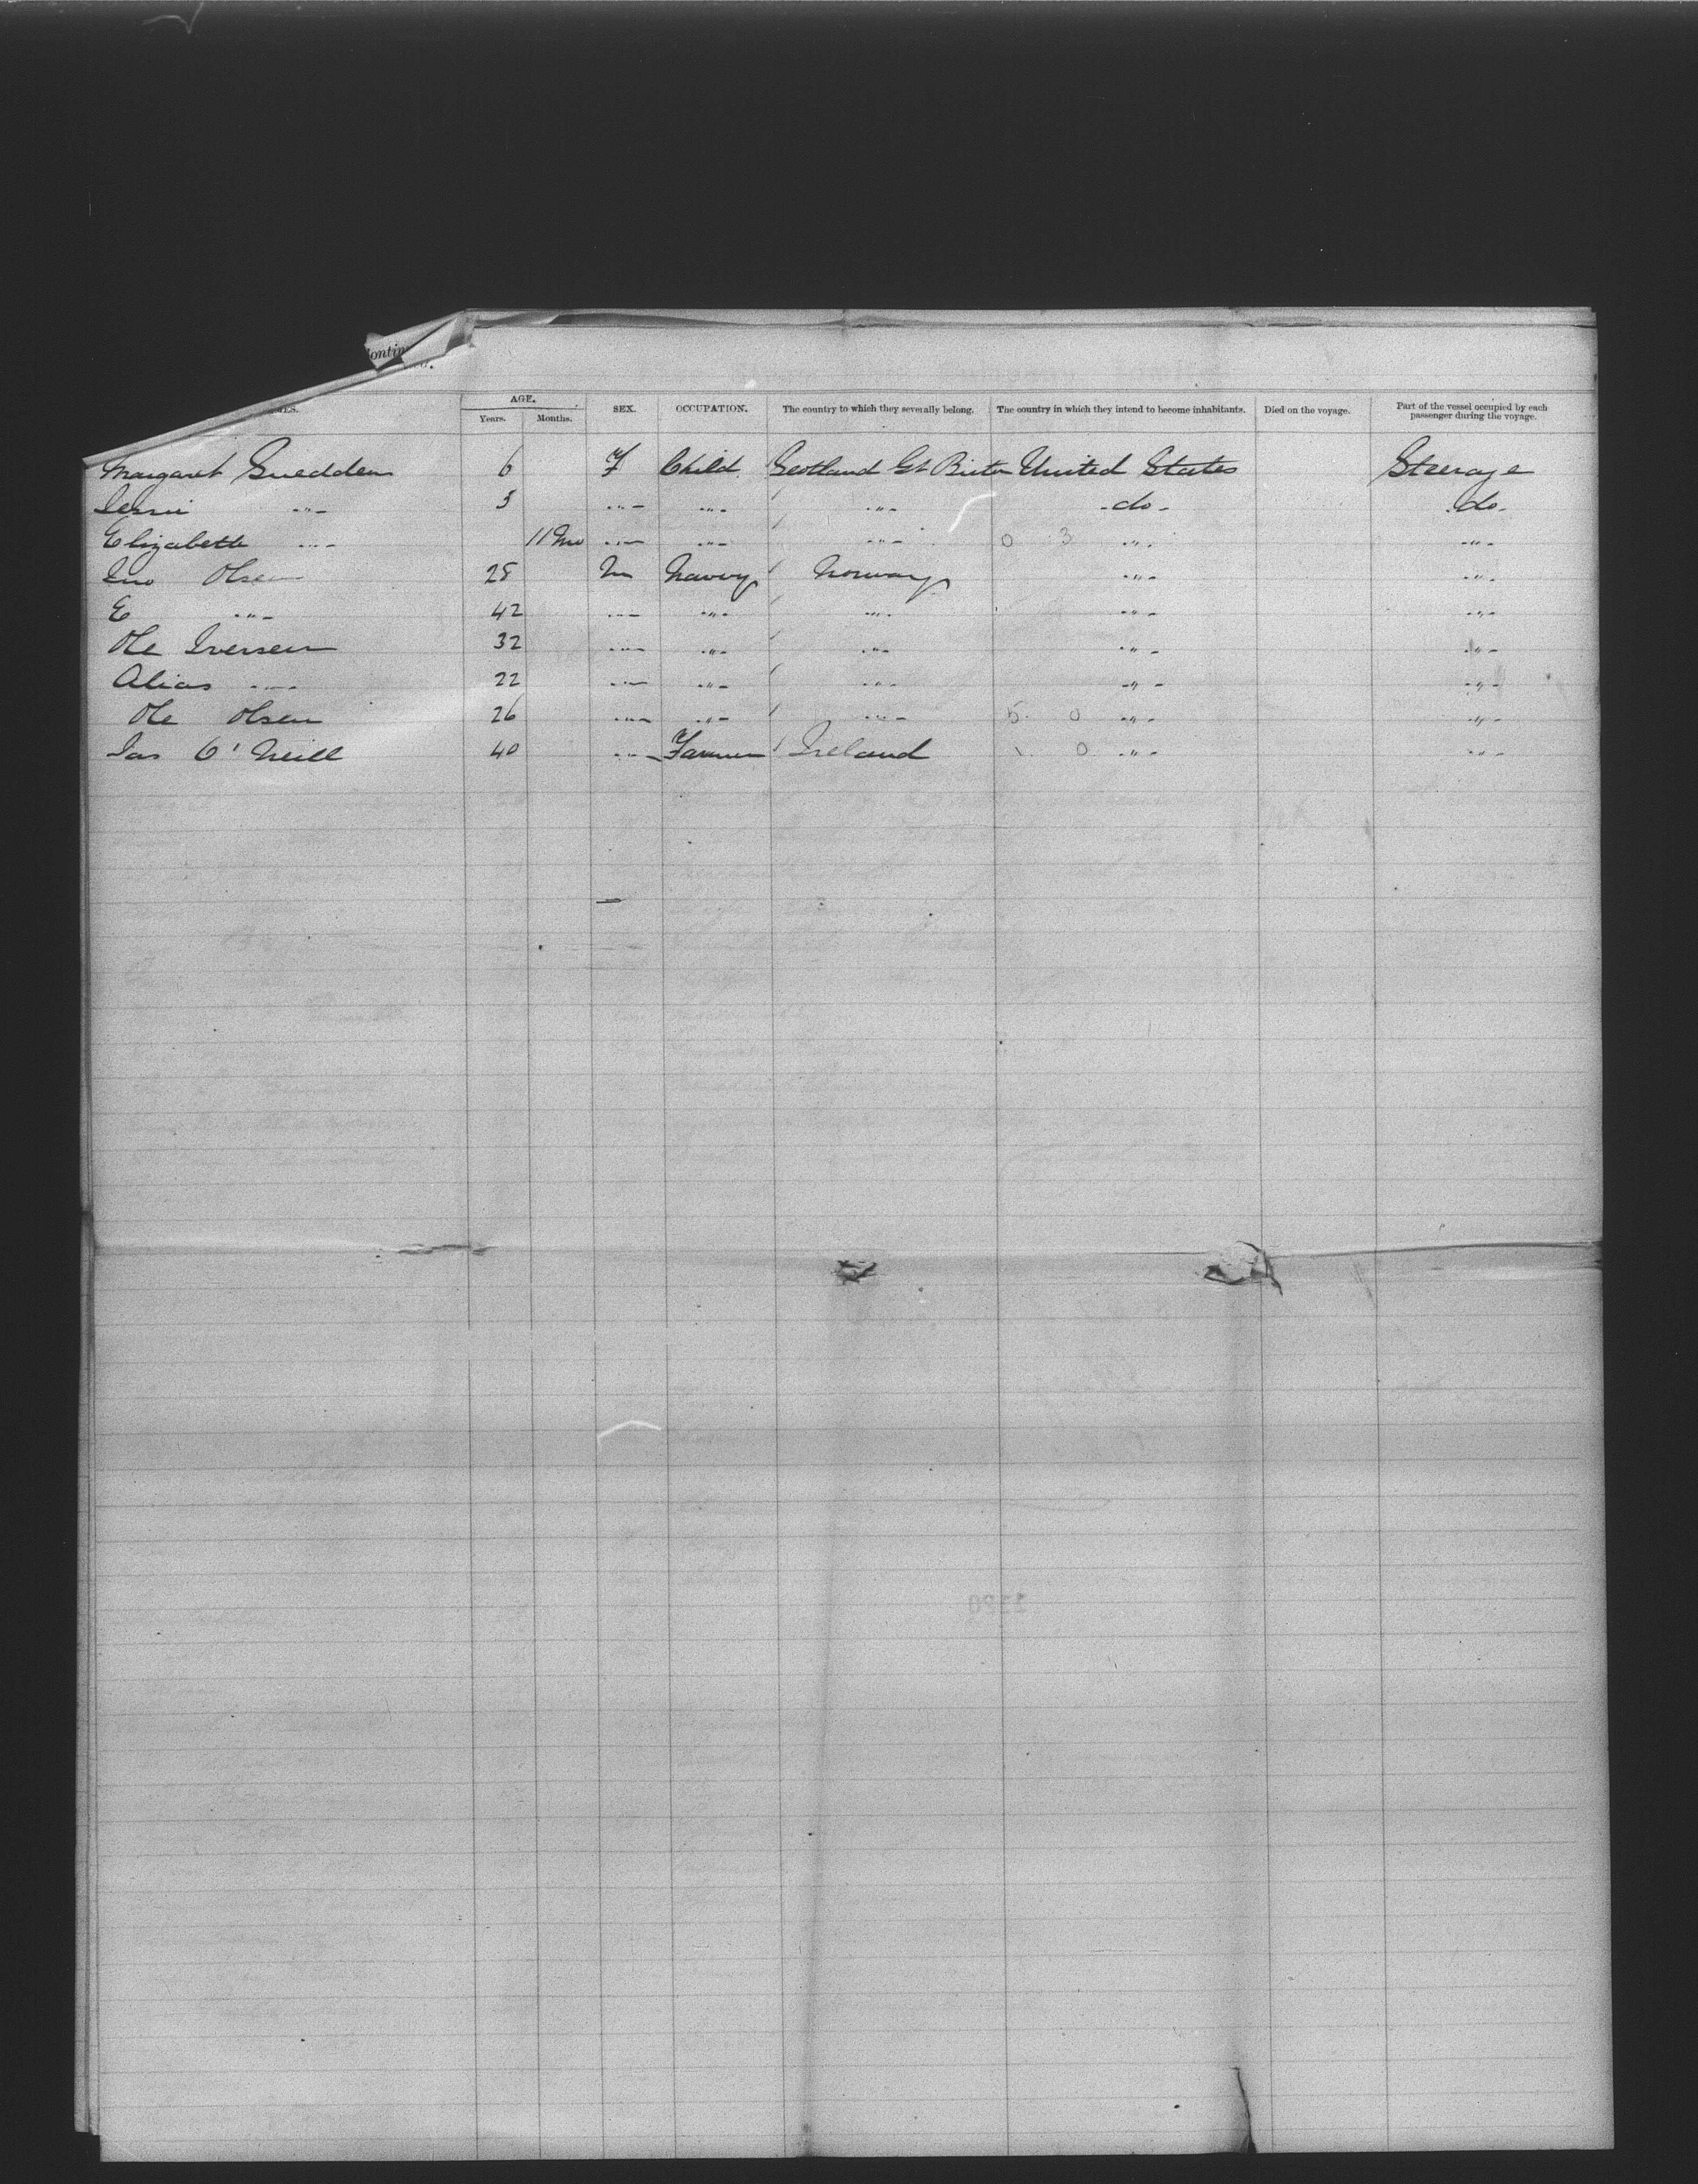 Contin
d.
MES. AGE. SEX. OCCUPATION. The country to which they severally belong. The country in which they intend to become inhabitants. Died on the voyage. Part of the vessel occupied by each passenger during the voyage.
Years. Months.
Margaret Snedden 6 F Child Scotland Gt Britn United States Steerage
Jessie -"- 5 -"- -"- -"- -do- -do-
Elizabeth -"- 11 Mo -"- -"- -"- 0 3 -"- -"-
Jno Olsen 28 M Navvy Norway -"- -"-
E -"- 42 -"- -"- -"- -"- -"-
Ole Iversen 32 -"- -"- -"- -"- -"-
Alias -"- 22 -"- -"- -"- -"- -"-
Ole Olsen 26 -"- -"- -"- 5 0 -"- -"-
Jas O'Neill 40 -"- Farmer Ireland 0 -"- -"-